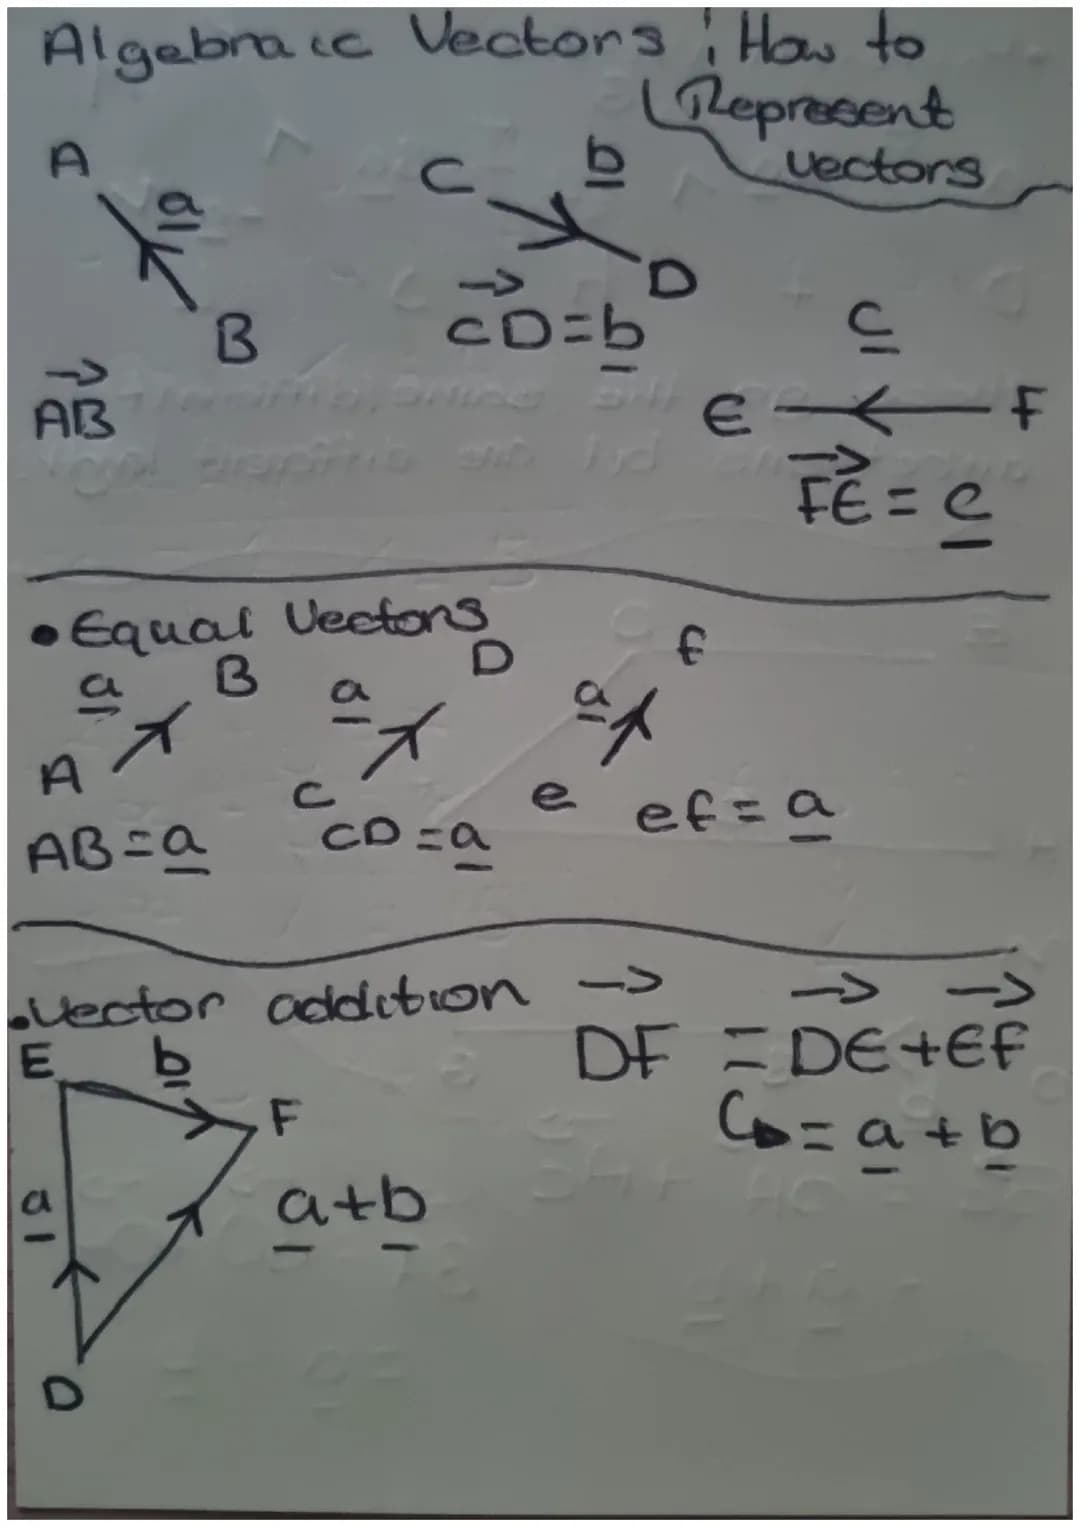 Algebraic Vectors : How to
Represent
vectors
A
a
B
AB
C
b
D
CD = b
c
E
F
FE = c
• Equal Vectors
a
B
A
AB = a
a
D
C
CD = a
a
f
e
ef = a
• Vector addition
E
b
F
a
a + b
D
DF = DE + EF
= a + b